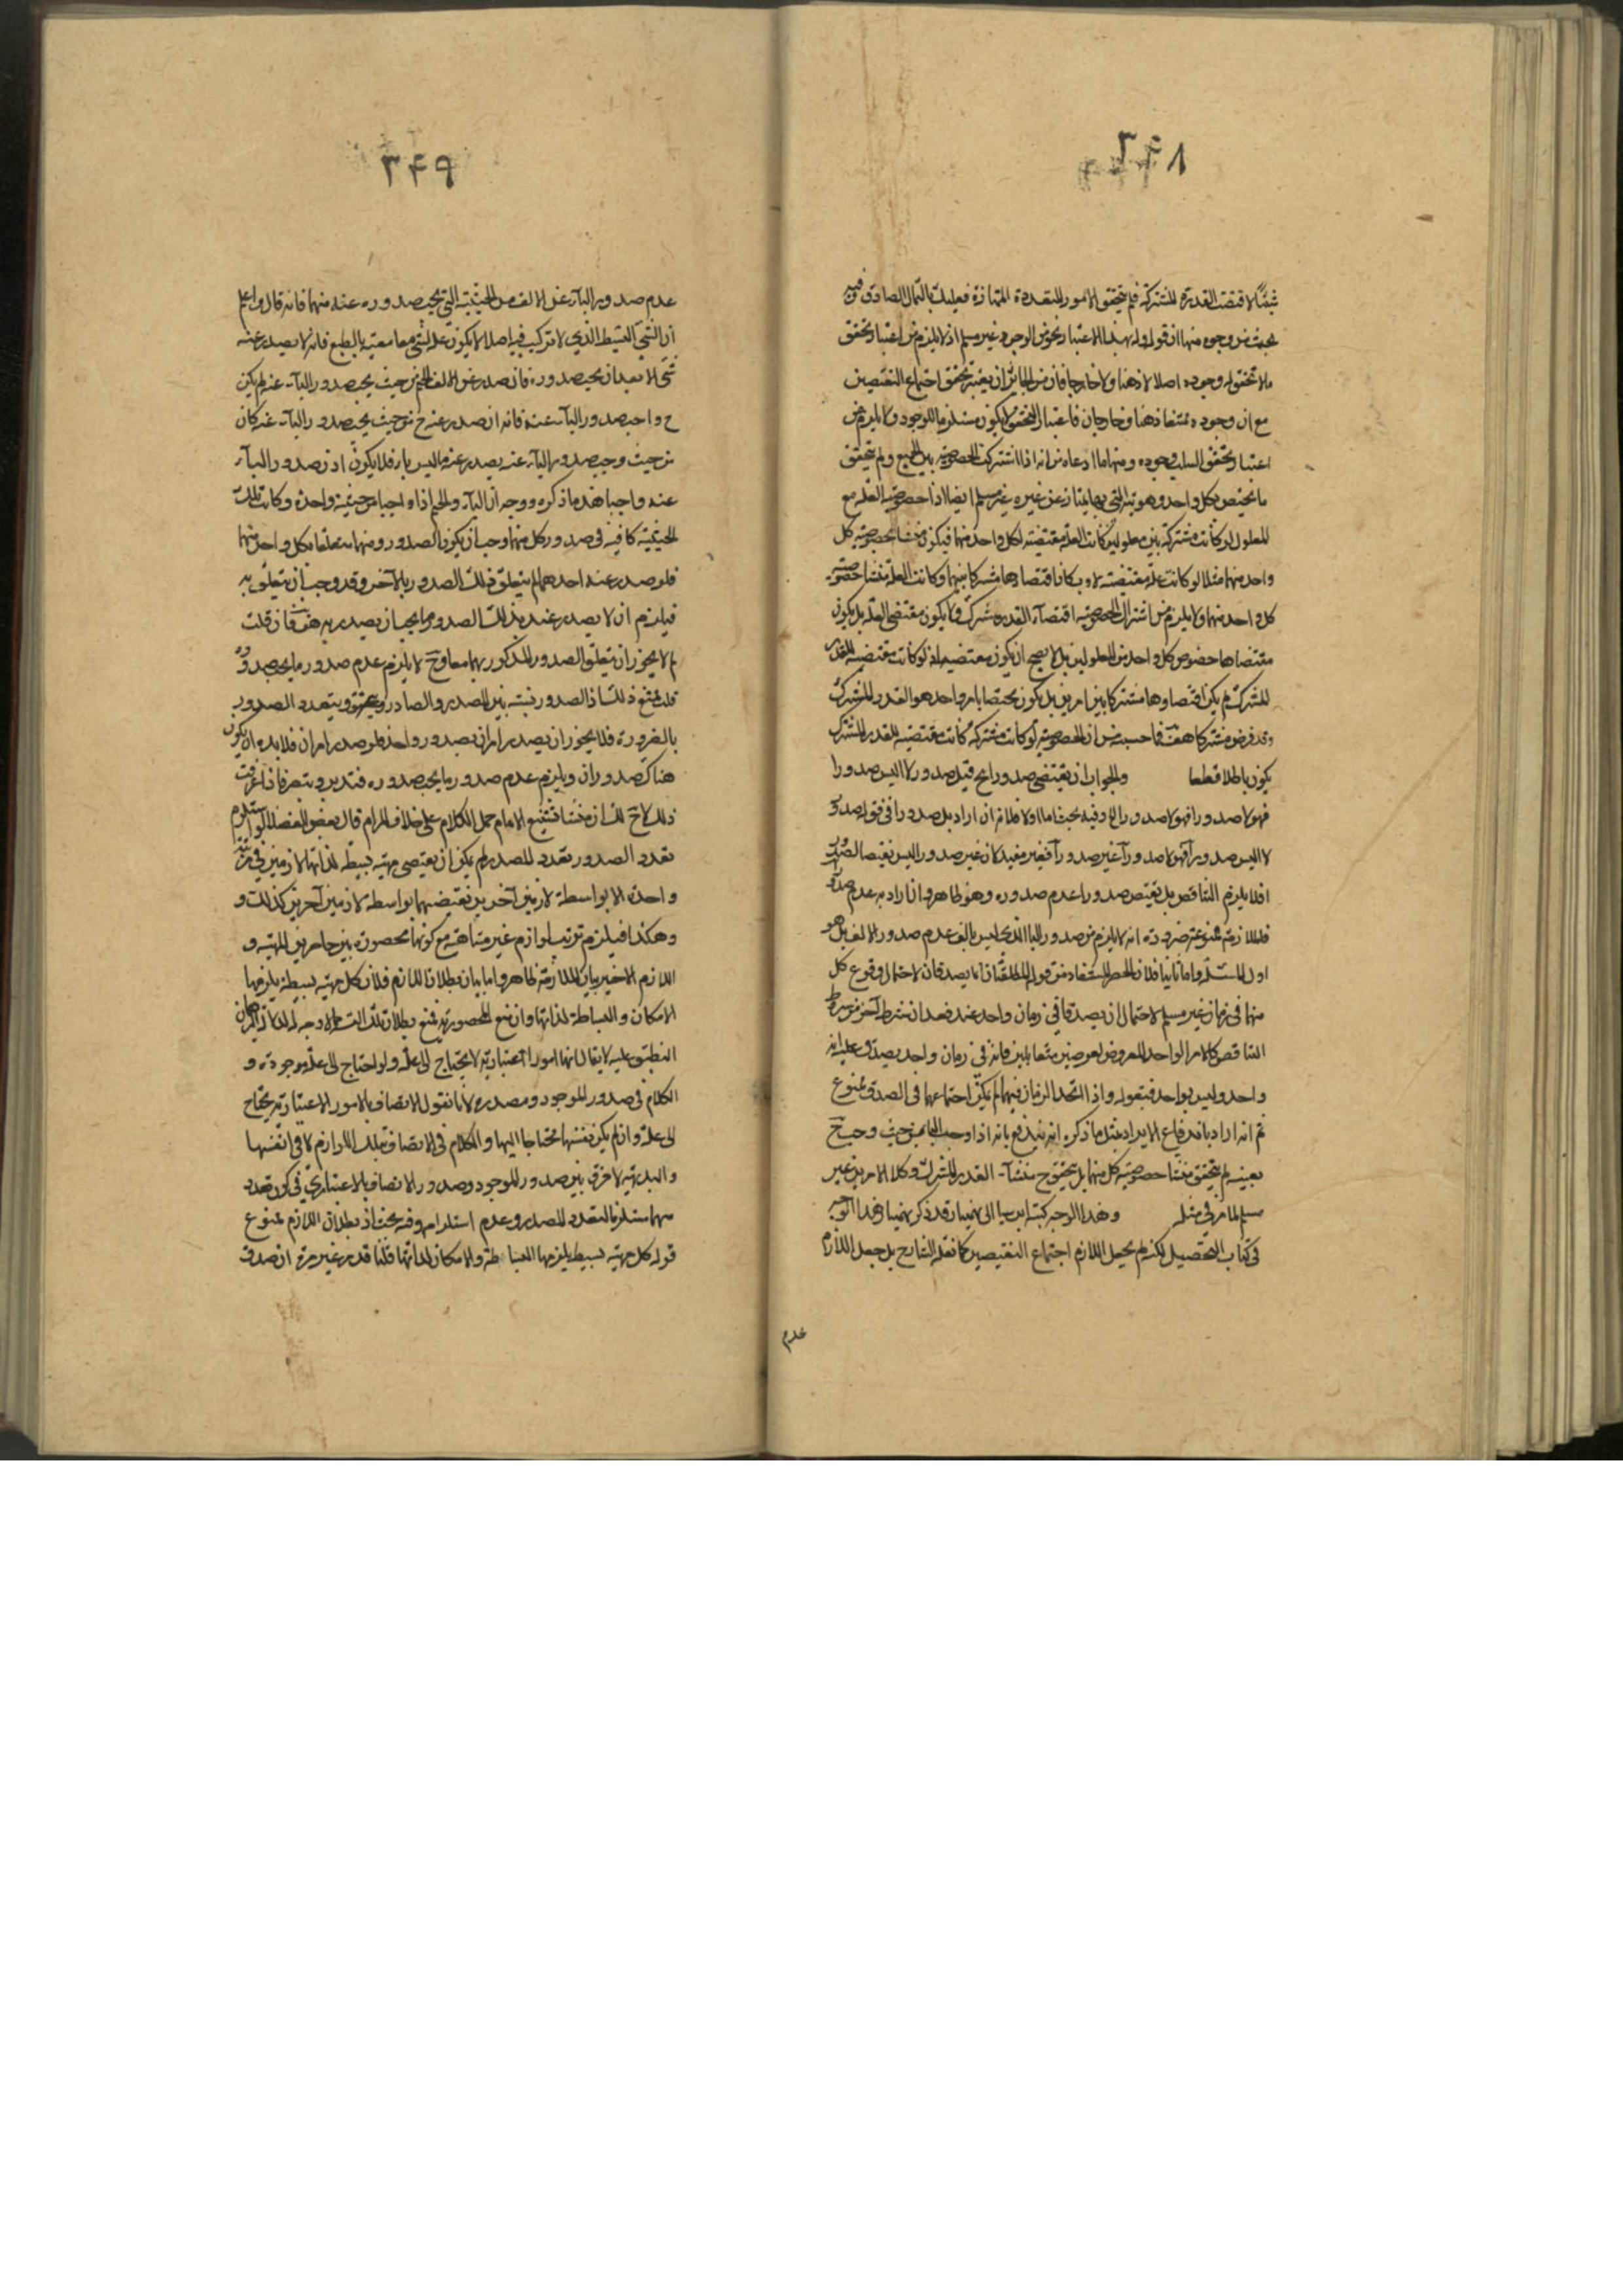 ٣٤٨
شيئا لاقتضت القدرة المشتركة فلم يتحقق الامور المتعددة المتمايزة فعليك بالتأمل الصادق فيه
بحث من وجوه منها ان قوله بهذا الاعتبار نحو من الوجود غير مسلم اذ لا يلزم من اعتبار تحقق
ما لا تحقق له وجوده اصلا لا ذهنا ولا خارجا فان من الجائز ان يعتبر تحقق اجتماع النقيضين
مع ان وجوده ممتنع ذهنا وخارجا فان اعتبار التحقق لا يكون مستلزما للوجود ولا يلزم من
اعتبار تحقق السلب وجوده ومنها ما ادعاه من انه اذا اشتركت الخصوصية بين الجميع ولم يتحقق
ما يختص بكل واحد وهويته التي بها يمتاز عن غيره غير مسلم ايضا اذ خصوصية العلة مع
المعلول لو كانت مشتركة بين معلولين كانت العلة مقتضية لكل واحد منهما فيكون منشا خصوصية كل
واحد منهما مثلا لو كانت علة مقتضية لا وب كان اقتضاؤها مشتركا بينهما وكانت العلة منشا خصوصية
كل واحد منهما ولا يلزم من اشتراك الخصوصية اقتضاء القدر المشترك ولا يكون مقتضى العلة بل يكون
مقتضاها خصوص كل واحد من المعلولين بل لا يصح ان يكون مقتضيه اذ لو كانت مقتضية للقدر
المشترك لم يكن اقتضاؤها مشتركا بين امرين بل يكون مختصا بامر واحد هو القدر المشترك
وقد فرض مشتركا هف فما حسبه من ان الخصوصية لو كانت مشتركة كانت مقتضية للقدر المشترك
يكون باطلا قطعا والجواب ان يقتضى صدور ا ب قبل صدور لا ا ليس صدور ا
فهو لا صدور ا فهو لا صدور ا الخ وفيه بحث اما اولا فلانه ان اراد بلا صدور ا في قوله صدور
لا ا ليس صدور ا فهو لا صدور ا غير صدور ا فغير مفيد لان غير صدور ا ليس نقيضا لصدور
ا فلا يلزم التناقض بل نقيض صدور ا عدم صدوره وهو ظاهر وان اراد به عدم صدور ا
فالملازمة ممنوعة ضرورة انه لا يلزم من صدور الباء الذي ليس بالف عدم صدور الالف بل هو
اول المسئلة واما ثانيا فلان الحصر المستفاد من قوله المطلقتان انما يصدقان لاحتمال وقوع كل
منهما في زمان غير مسلم لاحتمال ان يصدقا في زمان واحد عند فقدان شرط آخر من شرائط
التناقض كالامر الواحد المعروض لعرضين متقابلين فانه في زمان واحد يصدق عليه انه
واحد وليس بواحد فبقوله واذا اتحد الزمان فيهما لم يمكن اجتماعهما في الصدق ممنوع
ثم انه اراد باندفاع الايراد بمثل ما ذكره انه يندفع بانه اذا وجب الباء من حيث وجب ج
بعينه لم يتحقق منشا خصوصية كل منهما بل يتحقق ح منشأ القدر المشترك وكلا الامرين غير
مسلم لما مر في مثله وهذا الوجه كتبه ابن سينا الى بهمنيار قد ذكر بهمنيار هذا الوجه
في كتاب التحصيل لكنه لم يجعل اللازم اجتماع النقيضين كما نقله الشارح بل جعل اللازم
عدم
٣٤٩
عدم صدور الباء عن الالف من الحيثية التي يجب صدوره عنه منها فانه قال واعلم
ان الشئ البسيط الذي لا تركيب فيه اصلا لا يكون علة لشئ معا معية بالطبع فانه لا يصدر عنه
شئ الا بعد ان يجب صدوره فان صدر عن الالف الجيم من حيث يجب صدور الباء عنه لم يكن
ح واجب صدور الباء عنه فانه ان صدر عنه ج من حيث يجب صدور الباء عنه كان
من حيث وجب صدور الباء عنه يصدر عنه ما ليس باء فلا يكون اذن صدور الباء
عنه واجبا هذا ما ذكره ووجه ان الباء والجيم اذا وجبا من حيثية واحدة وكانت تلك
الحيثية كافية في صدور كل منهما وجب ان يكون الصدور منها متعلقا بكل واحد منهما
فلو صدر عنه احدهما لم يتعلق ذلك الصدور بالآخر وقد وجب ان يتعلق به
فيلزم ان لا يصدر عنه بذلك الصدور ما يجب ان يصدر به هف فان قلت
لم لا يجوز ان يتعلق الصدور المذكور بهما معا وح لا يلزم عدم صدور ما يجب صدوره
قلت يمتنع ذلك اذ الصدور نسبة بين المصدر والصادر ويتحقق ويتعدد الصدور
بالضرورة فلا يجوز ان يصدر امران بصدور واحد فلو صدر امران فلا بد ان يكون
هناك صدوران ويلزم عدم صدور ما يجب صدوره فتدبر وتبصر فاذا عرفت
ذلك لاح لك ان منشا تشنيع الامام حمل الكلام على خلاف المرام قال بعض الفضلا لو استلزم
تعدد الصدور تعدد المصدر لم يمكن ان يقتضى مهية بسيطة لذاتها لازمين في مرتبة
واحدة الا بواسطة لازمين آخرين نقتضيهما بواسطة لازمين آخرين كذلك و
وهكذا فيلزم ترتب لوازم غير متناهية مع كونها محصورة بين حاصرين المهية و
اللازم الاخير بيان الملازمة ظاهر واما بيان بطلان اللازم فلان كل مهية بسيطة يلزمها
الامكان والبساطة لذاتها وان منع المحصورية فمنع بطلان تلك التسلسل لا وجه له لان البرهان
التطبيق عليه لا يقال انها امور اعتبارية لا يحتاج الى علة ولو احتاج الى علة موجودة و
الكلام في صدور الموجود ومصدره لانا نقول الاتصاف بالامور الاعتبارية يحتاج
الى علة وان لم يكن نفسها محتاجا اليها والكلام في الاتصاف بتلك اللوازم لا في انفسها
والبديهة لا تفرق بين صدور الموجود وصدور الاتصاف بالاعتباري في كون تعدد
مهما مستلزما لتعدد المصدر وعدم استلزامه وفيه بحث اذ بطلان اللازم ممنوع
قوله كل مهية بسيطة يلزمها البساطة والامكان لذاتها قلنا قد مر غير مرة ان صدق